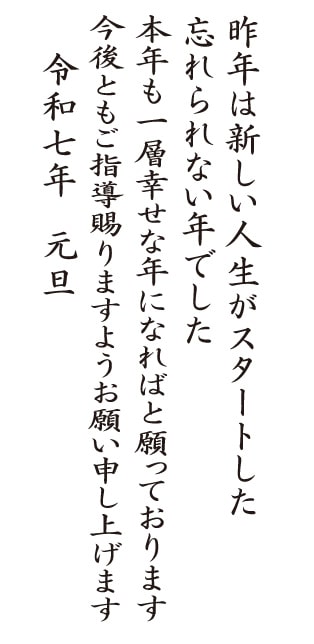 昨年は新しい人生がスタートした
忘れられない年でした
本年も一層幸せな年になればと願っております
今後ともご指導賜りますようお願い申し上げます
令和七年　元旦